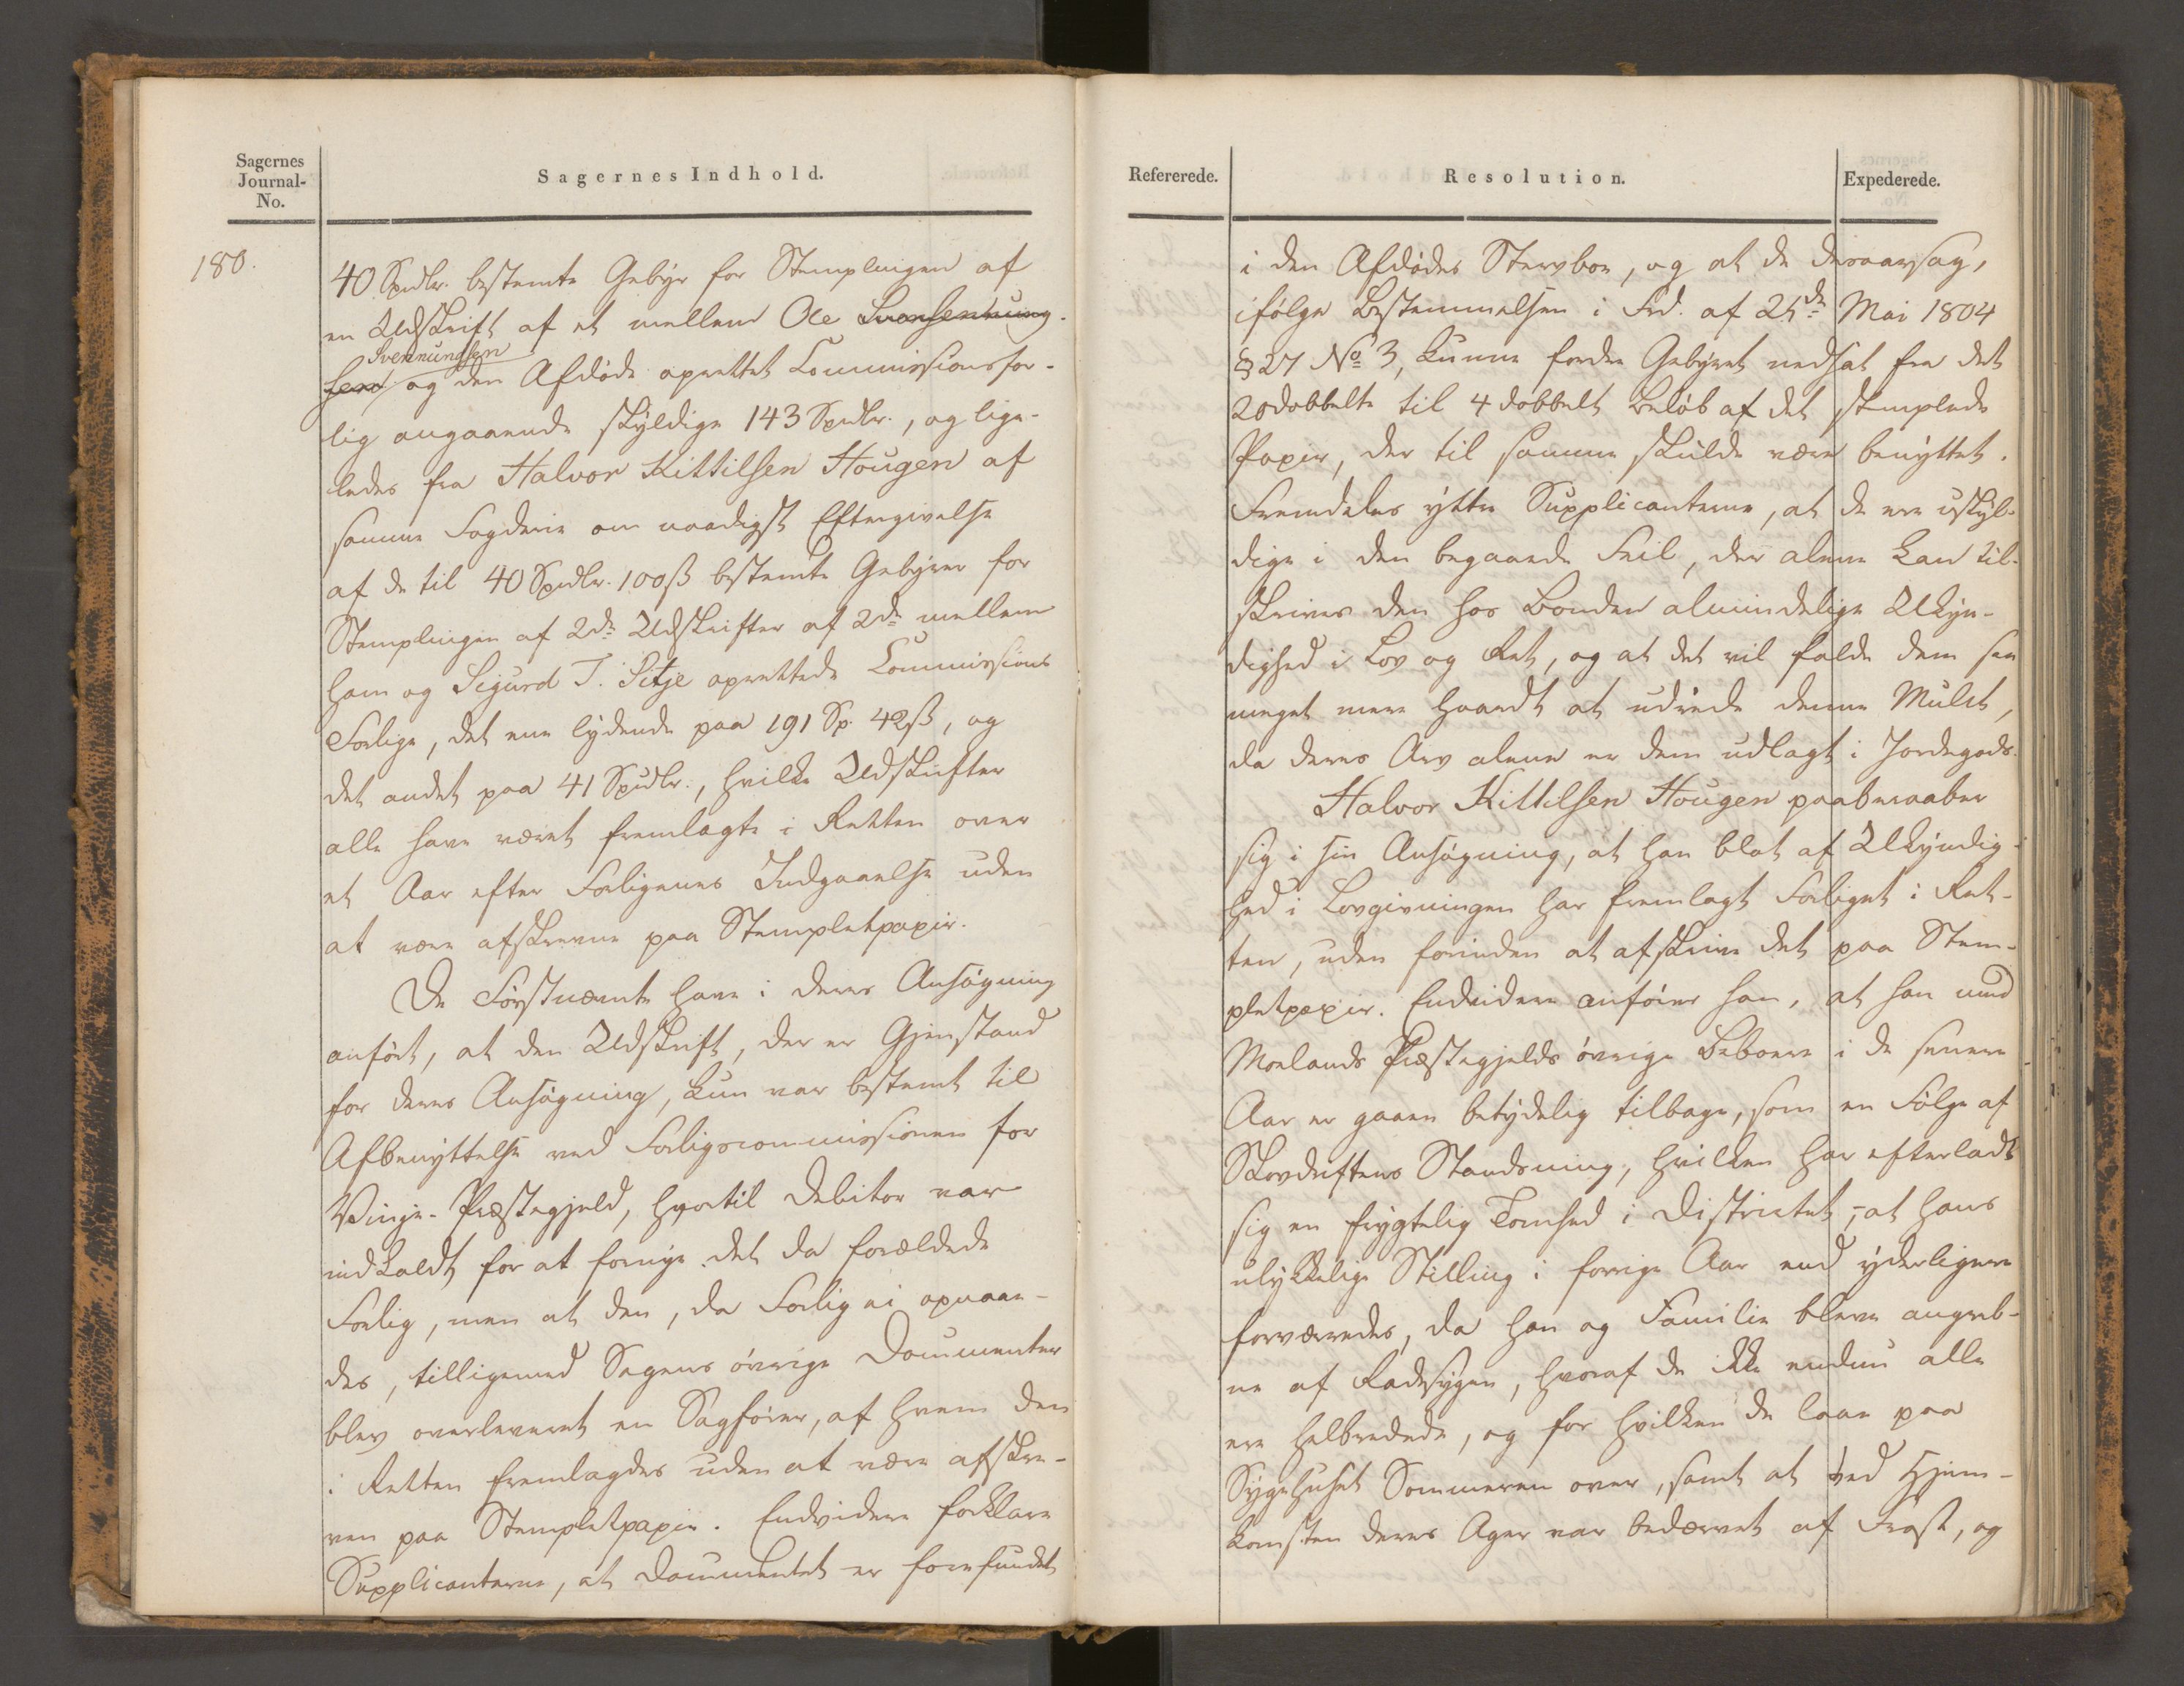 Sagernes
Journal-
No.
Sagernes Indhold.
180.
40 Spdlr. bestemte Gebyr for Stemplingen af
en Udskrift af et mellem Ole Svensennung-
Svennungsen
sen og den Afdøde oprettet Commissionsfor-
lig angaaende skyldige 143 Spdlr., og lige-
ledes fra Halvor Kittilsen Hougen af
samme Fogderie om naadigst Eftergivelse
af de til 40 Spdlr. 100 ß bestemte Gebyrer for
Stemplingen af 2de Udskrifter af 2de mellem
ham og Sigurd T. Sitje oprettede Commissions
Forlige, det ene lydende paa 191 Sp. 42 ß, og
det andet paa 41 Spdlr., hvilke Udskrifter
alle have været fremlagte i Retten over
et Aar efter Forligenes Indgaaelse uden
at være afskrevne paa Stempletpapir.
De Førstnævnte have i deres Ansøgning
anført, at den Udskrift, der er Gjenstand
for deres Ansøgning, kun var bestemt til
Afbenyttelse ved Forligscommissionen for
Vinje-Præstegjeld, hvortil Debitor var
indkaldt for at fornye det da forældede
Forlig, men at den, da Forlig ei opnaae-
des, tilligemed Sagens øvrige Documenter
blev overleveret en Sagfører, af hvem den
i Retten fremlagdes uden at være afskre-
ven paa Stempletpapir. Endvidere forklare
Supplicanterne, at Documentet er forefundet
Refererede.
Resolution.
Expederede.
i den Afdødes Stervboe, og at de desaarsag,
ifølge Bestemmelsen i Frd. af 25de Mai 1804
§ 27 No 3, kunne fordre Gebyret nedsat fra det
20dobbelte til 4 dobbelt Beløb af det stemplede
Papir, der til samme skulde være benyttet.
Fremdeles yttre Supplicanterne, at de ere uskyl-
dige i den begaaede Feil, der alene kan til-
skrives den hos Bonden almindelige Ukyn-
dighed i Lov og Ret, og at det vil falde dem saa
meget mere haardt at udrede denne Mulct,
da deres Arv alene er dem udlagt i Jordegods.
Halvor Kittilsen Hougen paaberaaber
sig i sin Ansøgning, at han blot af Ukyndig-
hed i Lovgivningen har fremlagt Forliget i Ret-
ten, uden forinden at afskrive det paa Stem-
pletpapir. Endvidere anfører han, at han med
Moelands Præstegjelds øvrige Beboere i de senere
Aar er gaaen betydelig tilbage, som en Følge af
Skovdriftens Standsning, hvilken har efterladt
sig en frygtelig Tomhed i Districtet, - at hans
ulykkelige Stilling i forrige Aar end yderligere
forværredes, da han og Familie bleve angreb-
ne af Radesygen, hvoraf de ikke endnu alle
ere helbredede, og for hvilken de laae paa
Sygehuset Sommeren over, samt at ved Hjem-
komsten deres Ager var bedærvet af Frost, og